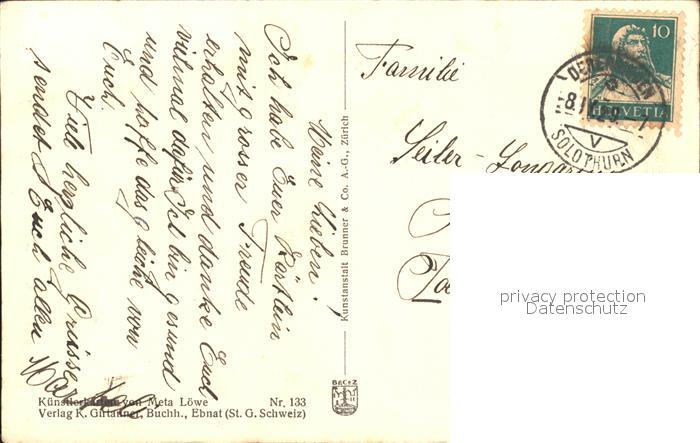 Meine Lieben!
Ich habe Euer Kärtlein
mit grosser Freude
erhalten und danke Euch
vielmal dafür. Ich bin gesund
und hoffe das gleiche von
Euch.
Viele herzliche Grüsse
sendet Euch allen
Familie
Seiler-
Kunstanstalt Brunner & Co. A.-G., Zürich
10
HELVETIA
SOLOTHURN
privacy protection
Datenschutz
BRCZ
Künstlerkarten von Meta Löwe Nr. 133
Verlag K. Girtanner, Buchh., Ebnat (St. G. Schweiz)